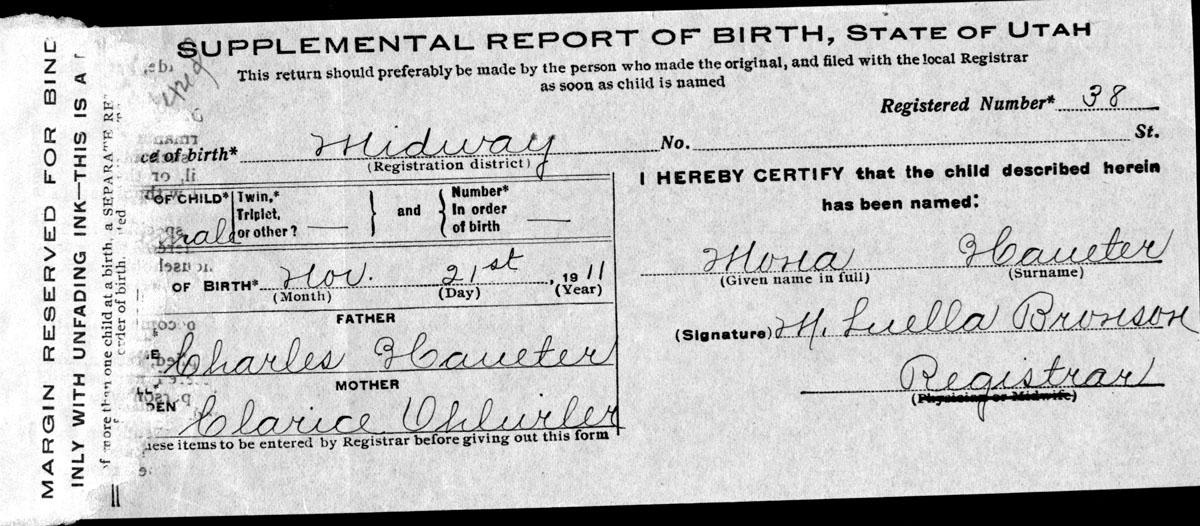 SUPPLEMENTAL REPORT OF BIRTH, STATE OF UTAH
This return should preferably be made by the person who made the original, and filed with the local Registrar
as soon as child is named
Registered Number* 38
ce of birth* Midway No. St.
(Registration district)
OF CHILD* Twin,* Triplet, or other? } and { Number* In order of birth
male
OF BIRTH* Nov. 21st, 1911
(Month) (Day) (Year)
FATHER
Charles Haueter
MOTHER
DEN Clarice
ese items to be entered by Registrar before giving out this form
I HEREBY CERTIFY that the child described herein
has been named:
Haueter
(Given name in full) (Surname)
(Signature) M. Luella Bronson
Registrar
(Physician or Midwife)
MARGIN RESERVED FOR BIND
INLY WITH UNFADING INK—THIS IS A
of more than one child at a birth, a SEPARATE RE
order of birth.